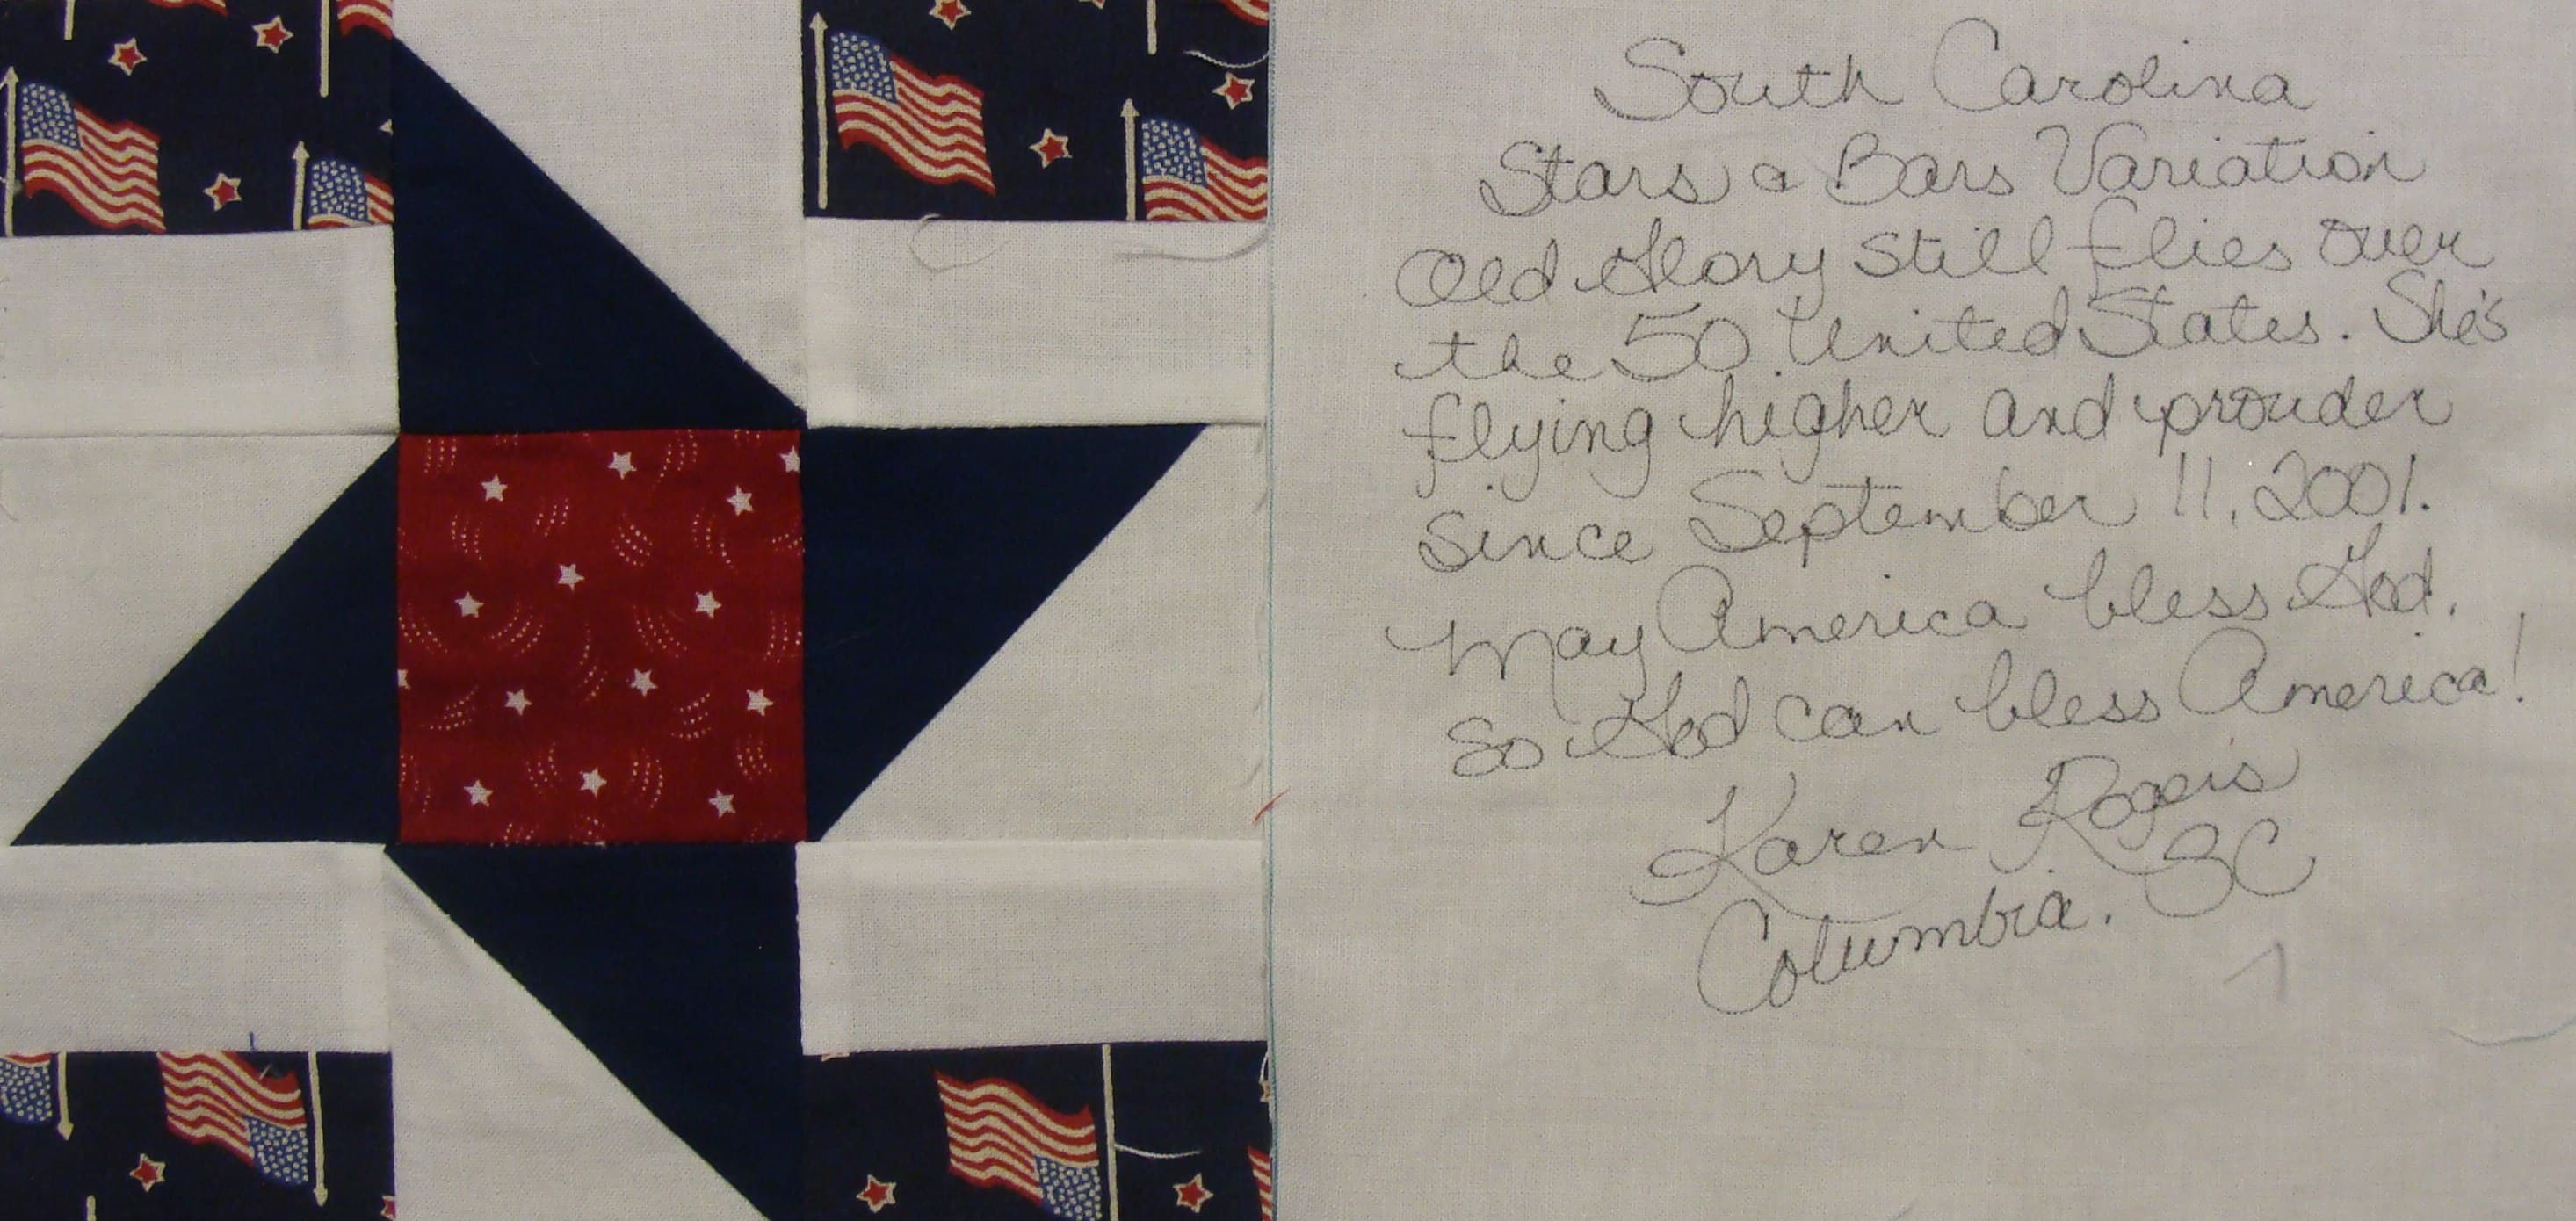 South Carolina
Stars & Bars Variation
Old Glory still flies over
the 50 United States. She's
flying higher and prouder
since September 11, 2001.
May America bless God.
So God can bless America!
Karen Rogers
Columbia, SC